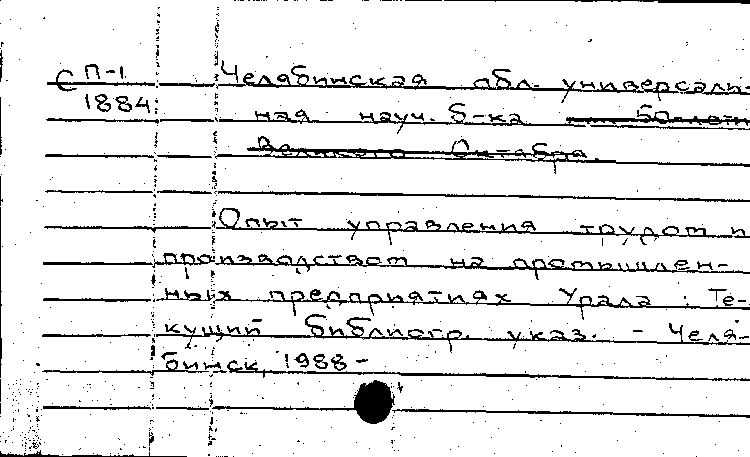 С П-1 Челябинская обл. универсаль-
1884 ная науч. б-ка им. 50-летия
Великого Октября.
Опыт управления трудом и
производством на промышлен-
ных предприятиях Урала : Те-
кущий библиогр. указ. - Челя-
бинск, 1988 -